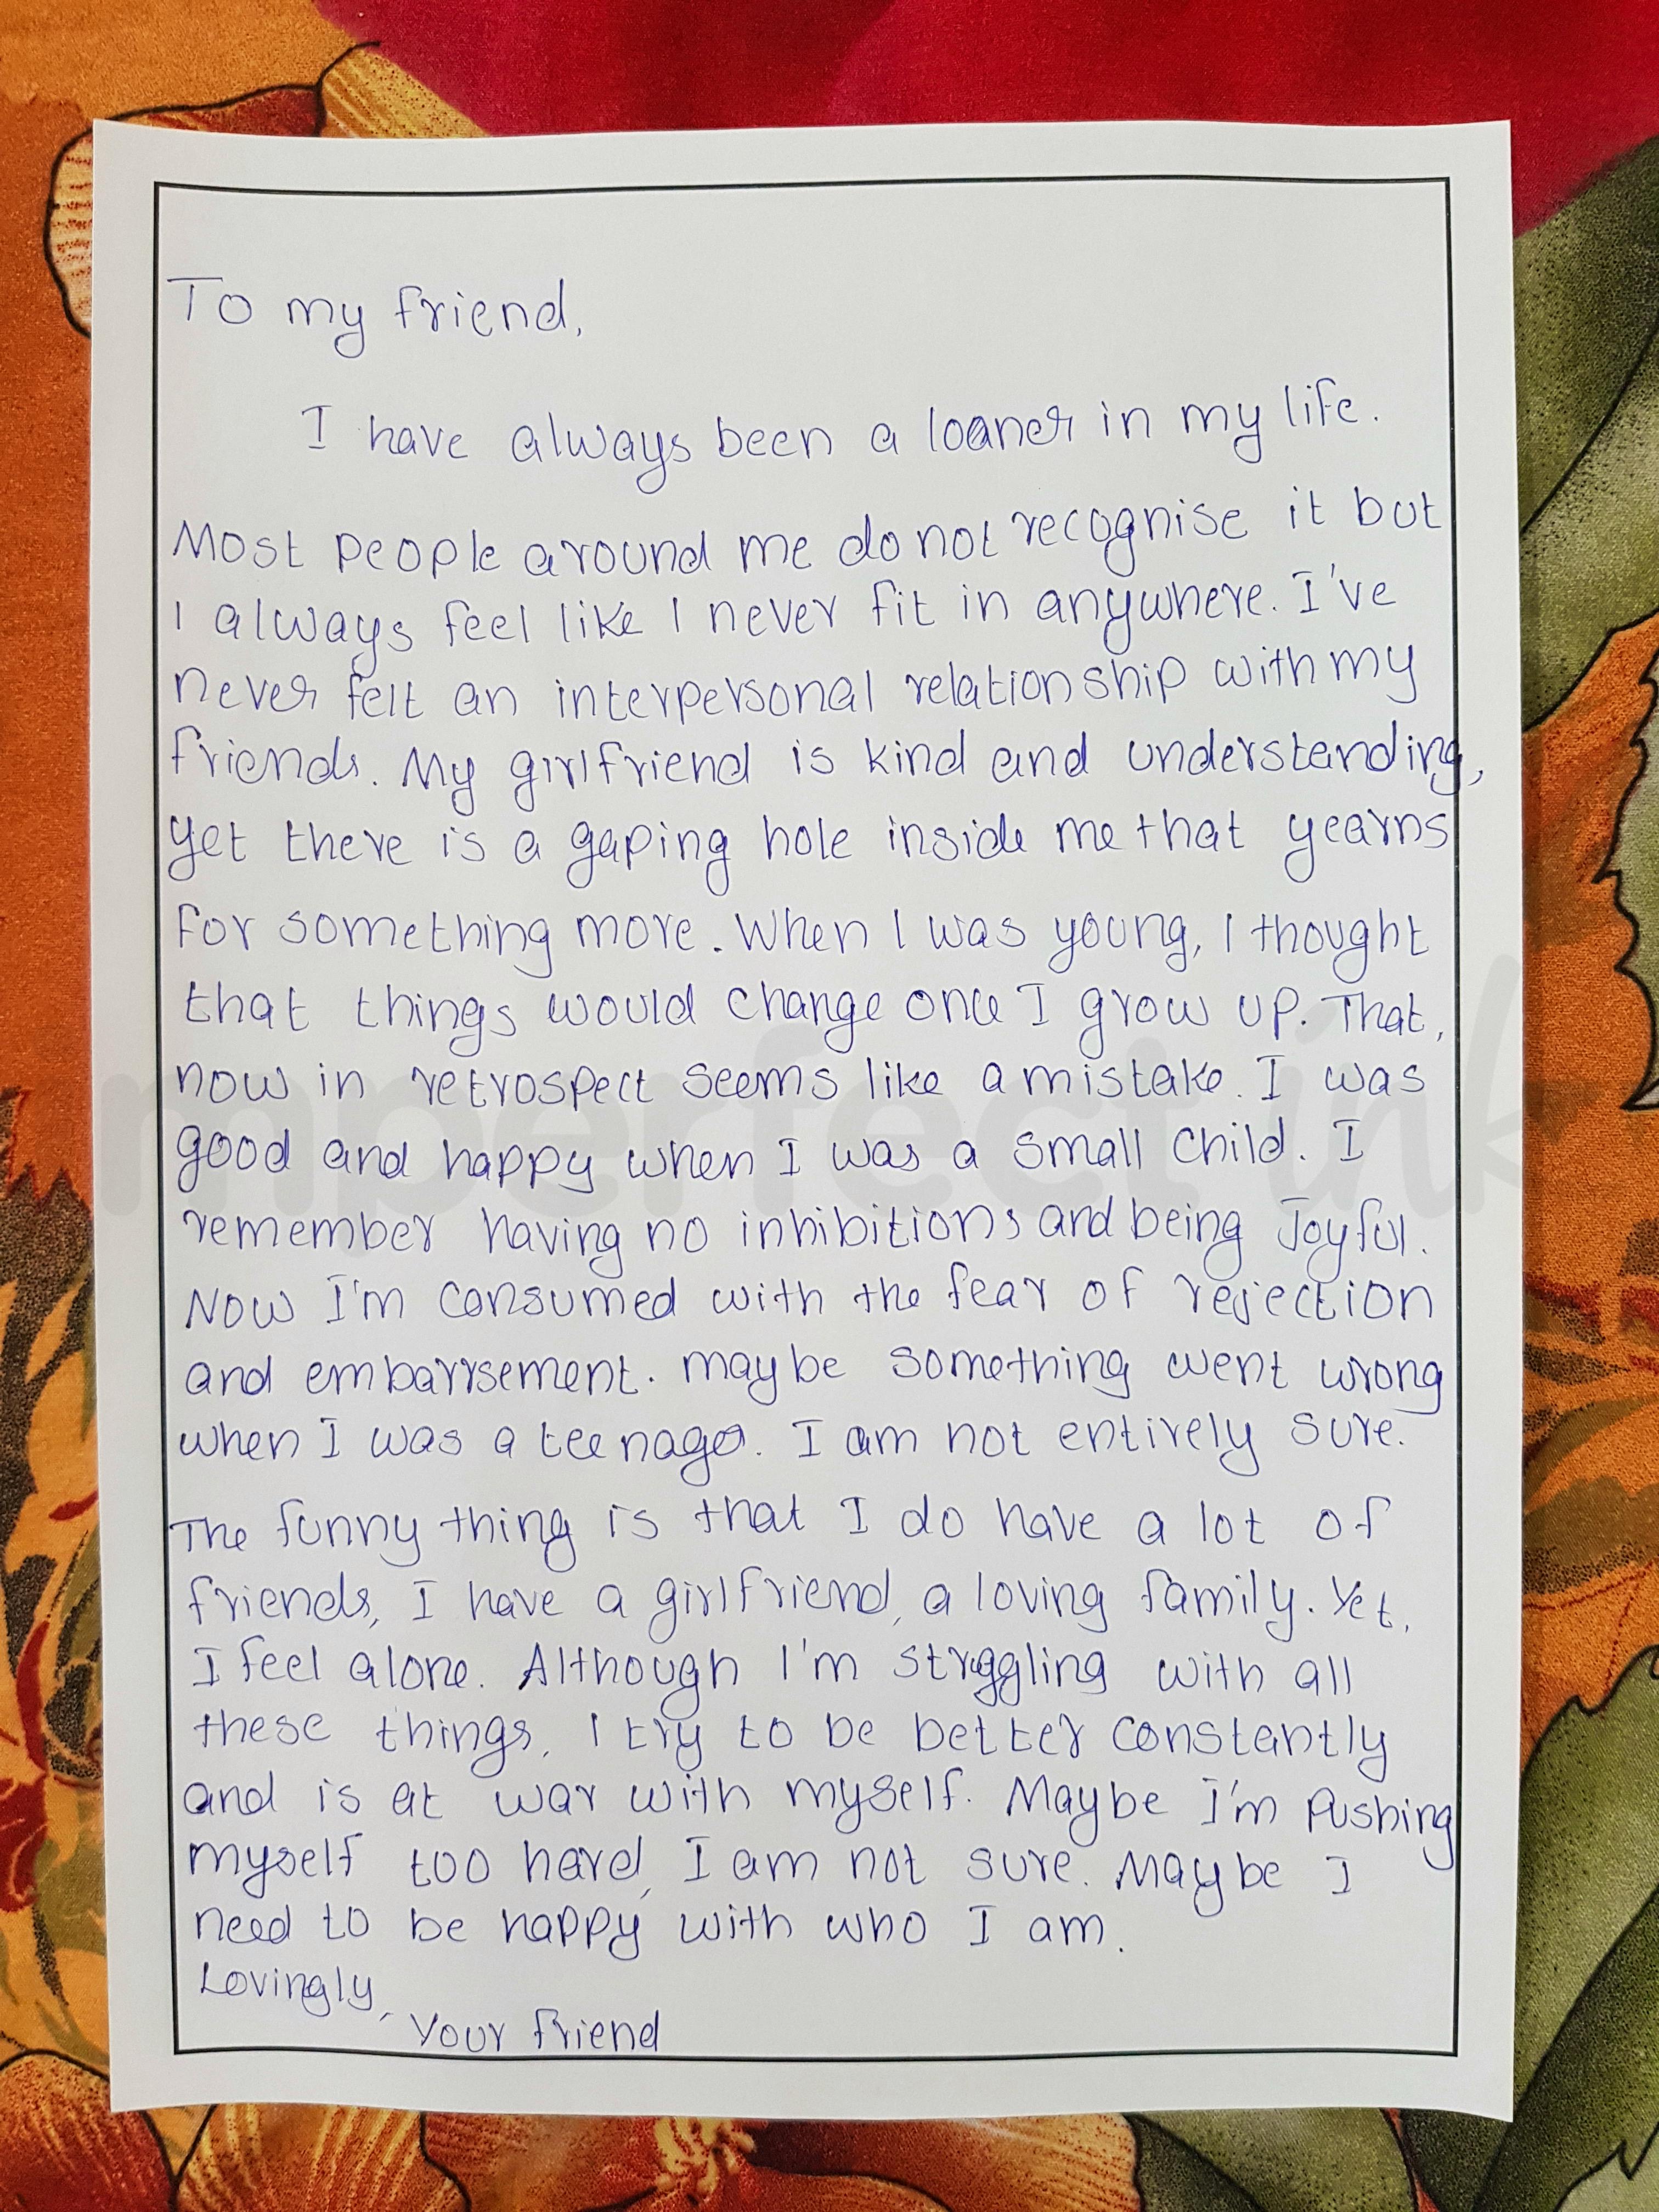 To my friend,
I have always been a loaner in my life.
Most people around me do not recognise it but
I always feel like I never fit in anywhere. I've
never felt an interpersonal relationship with my
friends. My girlfriend is kind and understanding,
yet there is a gaping hole inside me that yearns
for something more. When I was young, I thought
that things would change once I grow up. That,
now in retrospect seems like a mistake. I was
good and happy when I was a small child. I
remember having no inhibitions and being Joyful.
Now I'm consumed with the fear of rejection
and embarrsement. maybe something went wrong
when I was a teenager. I am not entirely sure.
The funny thing is that I do have a lot of
friends, I have a girlfriend, a loving family. Yet,
I feel alone. Although I'm struggling with all
these things, I try to be better constantly
and is at war with myself. Maybe I'm Pushing
myself too hard, I am not sure. Maybe I
need to be happy with who I am.
Lovingly,
Your friend
mperfect ink